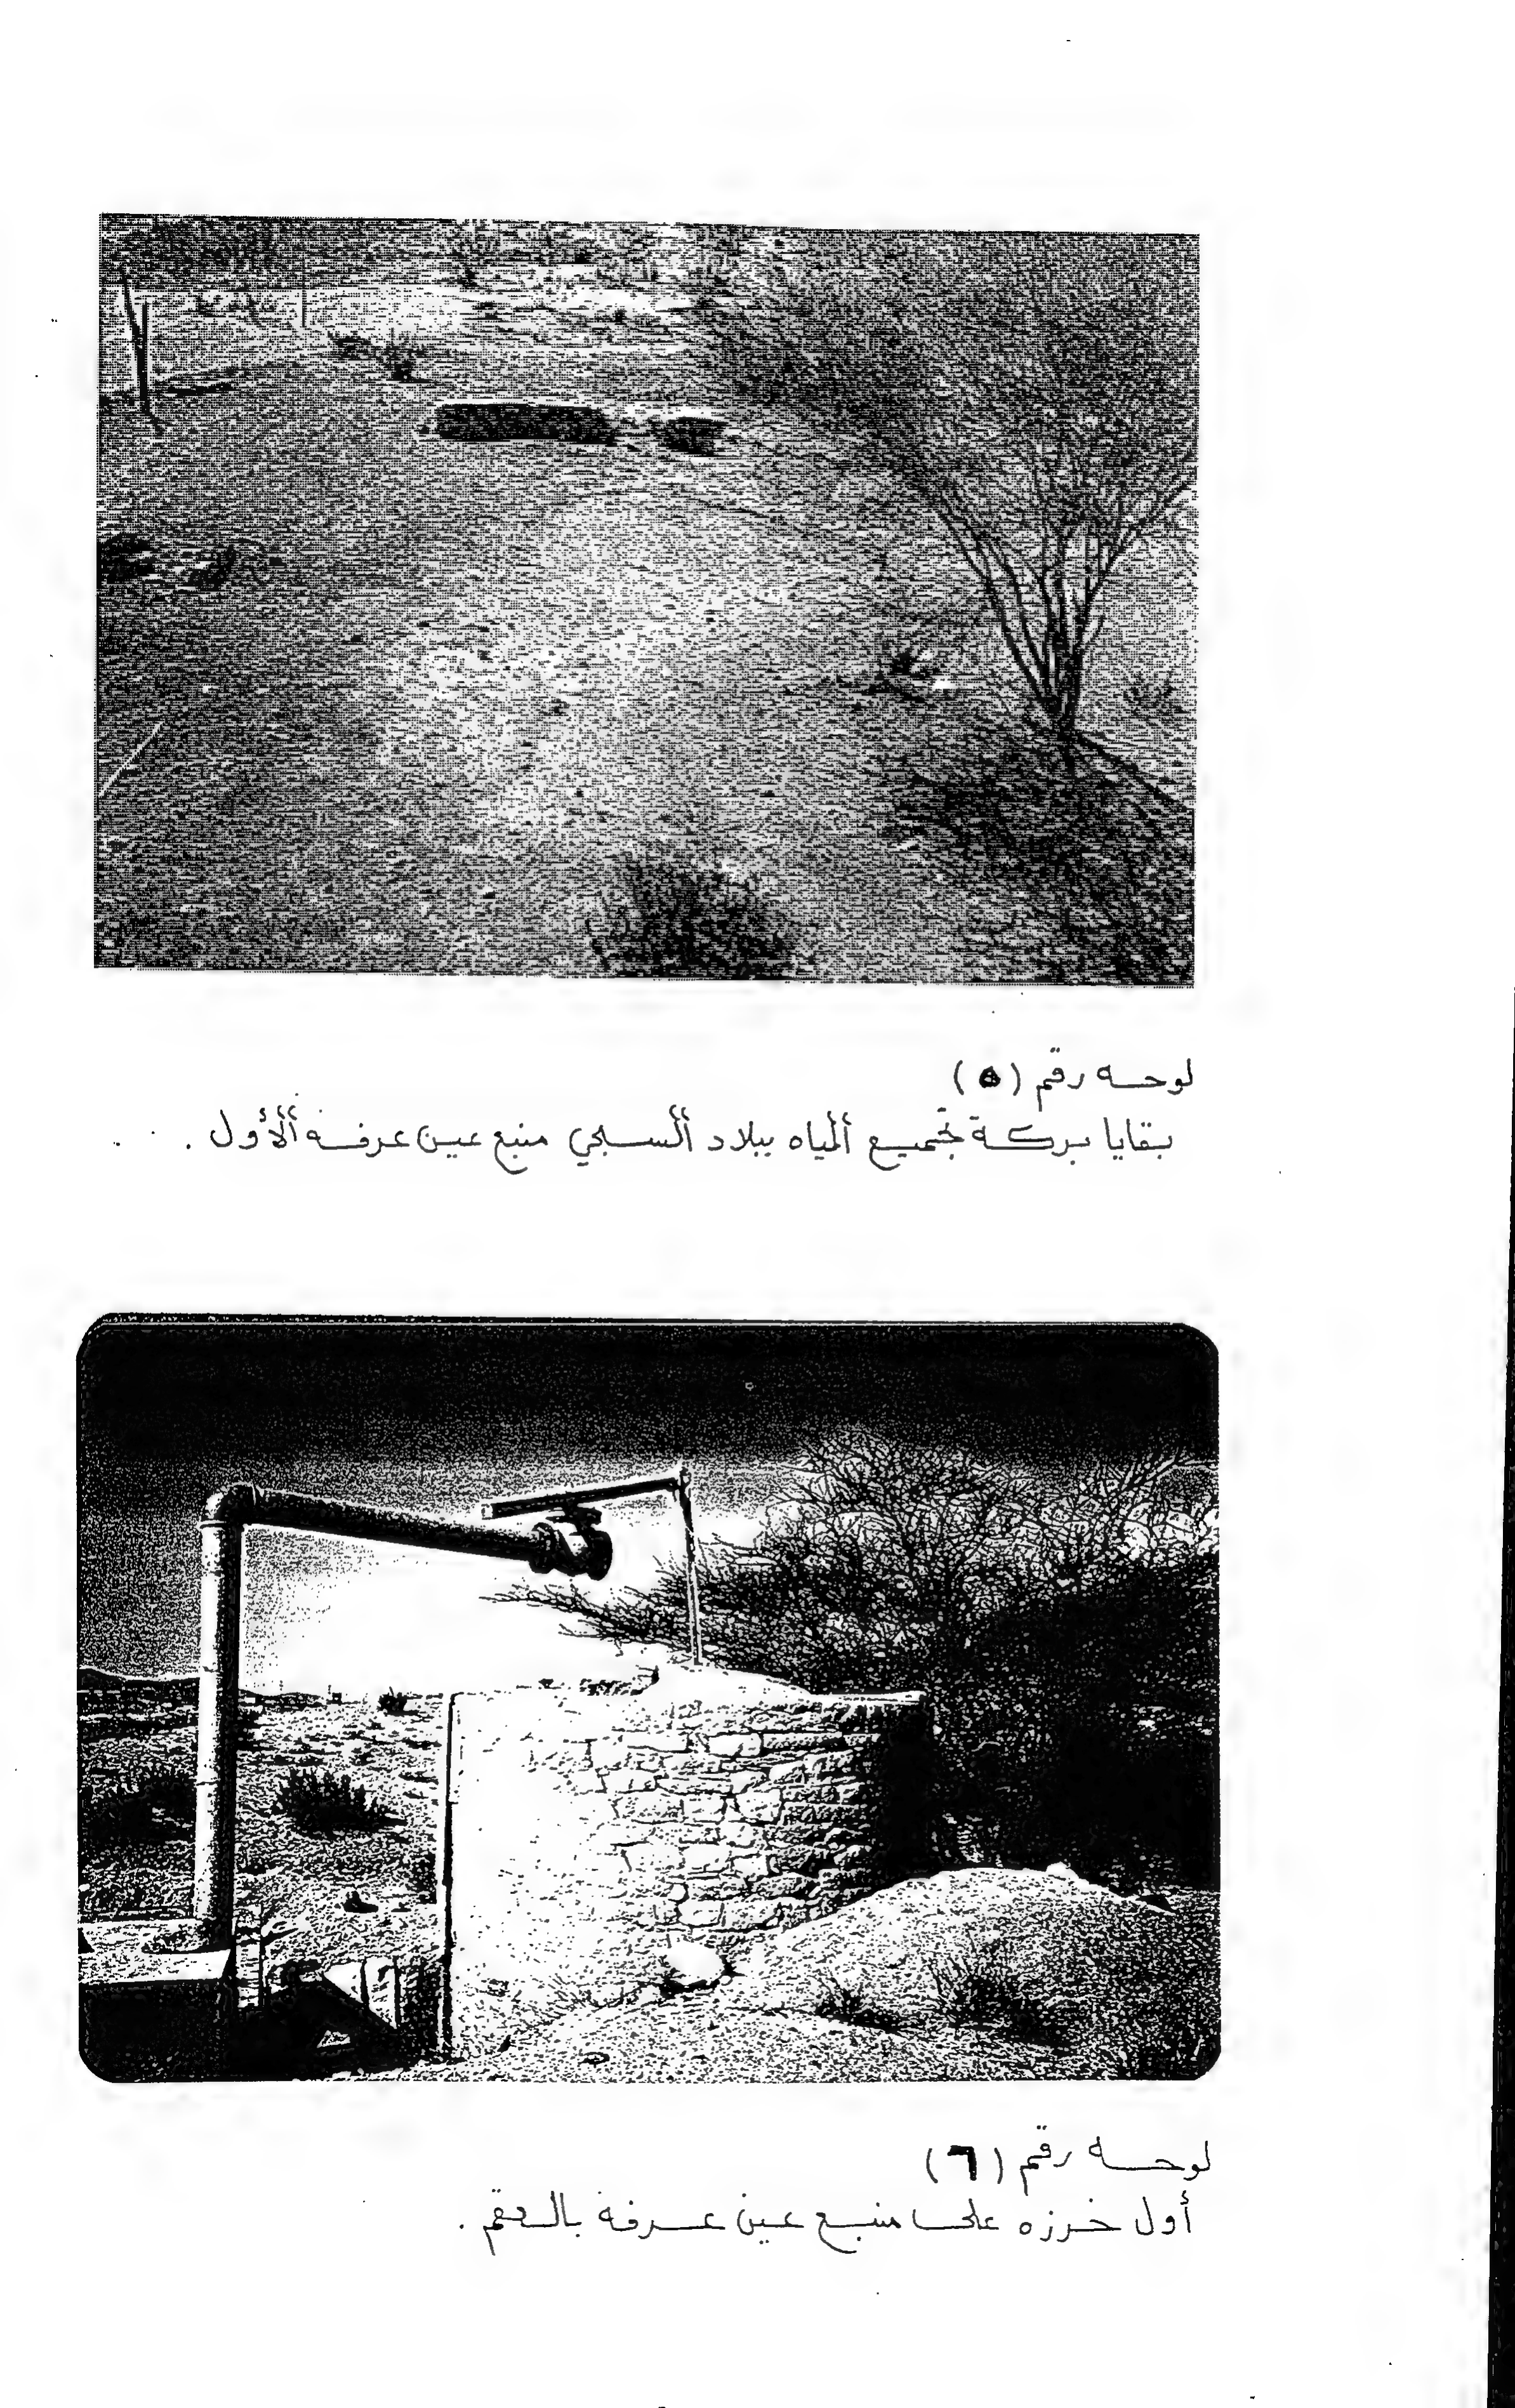 لوحه رقم (٥)
بقايا بركة تجميع ألمياه ببلاد ألسبخي منبع عين عرفه ألأول .
لوحه رقم (٦)
أول خرزه على منبع عين عرفة